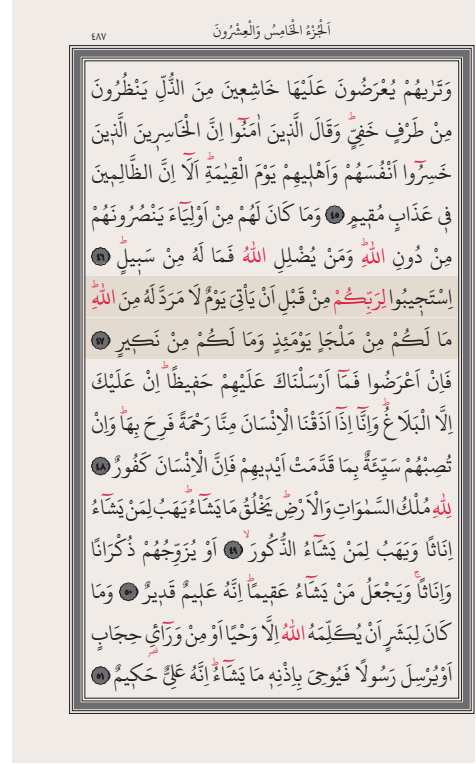 اَلْجُزْءُ الْخَامِسُ وَالْعِشْرُونَ
٤٨٧
وَتَرٰيهُمْ يُعْرَضُونَ عَلَيْهَا خَاشِعٖينَ مِنَ الذُّلِّ يَنْظُرُونَ
مِنْ طَرْفٍ خَفِيٍّؕ وَقَالَ الَّذٖينَ اٰمَنُٓوا اِنَّ الْخَاسِرٖينَ الَّذٖينَ
خَسِرُٓوا اَنْفُسَهُمْ وَاَهْلٖيهِمْ يَوْمَ الْقِيٰمَةِؕ اَلَٓا اِنَّ الظَّالِمٖينَ
فٖي عَذَابٍ مُقٖيمٍ ٤٥ وَمَا كَانَ لَهُمْ مِنْ اَوْلِيَٓاءَ يَنْصُرُونَهُمْ
مِنْ دُونِ اللّٰهِؕ وَمَنْ يُضْلِلِ اللّٰهُ فَمَا لَهُ مِنْ سَبٖيلٍؕ ٤٦
اِسْتَجٖيبُوا لِرَبِّكُمْ مِنْ قَبْلِ اَنْ يَأْتِيَ يَوْمٌ لَا مَرَدَّ لَهُ مِنَ اللّٰهِؕ
مَا لَكُمْ مِنْ مَلْجَأٍ يَوْمَئِذٍ وَمَا لَكُمْ مِنْ نَكٖيرٍ ٤٧
فَاِنْ اَعْرَضُوا فَمَٓا اَرْسَلْنَاكَ عَلَيْهِمْ حَفٖيظًاؕ اِنْ عَلَيْكَ
اِلَّا الْبَلَاغُؕ وَاِنَّٓا اِذَٓا اَذَقْنَا الْاِنْسَانَ مِنَّا رَحْمَةً فَرِحَ بِهَاۚ وَاِنْ
تُصِبْهُمْ سَيِّئَةٌ بِمَا قَدَّمَتْ اَيْدٖيهِمْ فَاِنَّ الْاِنْسَانَ كَفُورٌ ٤٨
لِلّٰهِ مُلْكُ السَّمٰوَاتِ وَالْاَرْضِؕ يَخْلُقُ مَا يَشَٓاءُؕ يَهَبُ لِمَنْ يَشَٓاءُ
اِنَاثًا وَيَهَبُ لِمَنْ يَشَٓاءُ الذُّكُورَۙ ٤٩ اَوْ يُزَوِّجُهُمْ ذُكْرَانًا
وَاِنَاثًاۚ وَيَجْعَلُ مَنْ يَشَٓاءُ عَقٖيمًاؕ اِنَّهُ عَلٖيمٌ قَدٖيرٌ ٥٠ وَمَا
كَانَ لِبَشَرٍ اَنْ يُكَلِّمَهُ اللّٰهُ اِلَّا وَحْيًا اَوْ مِنْ وَرَٓائِ حِجَابٍ
اَوْ يُرْسِلَ رَسُولًا فَيُوحِيَ بِاِذْنِهٖ مَا يَشَٓاءُؕ اِنَّهُ عَلِيٌّ حَكٖيمٌ ٥١